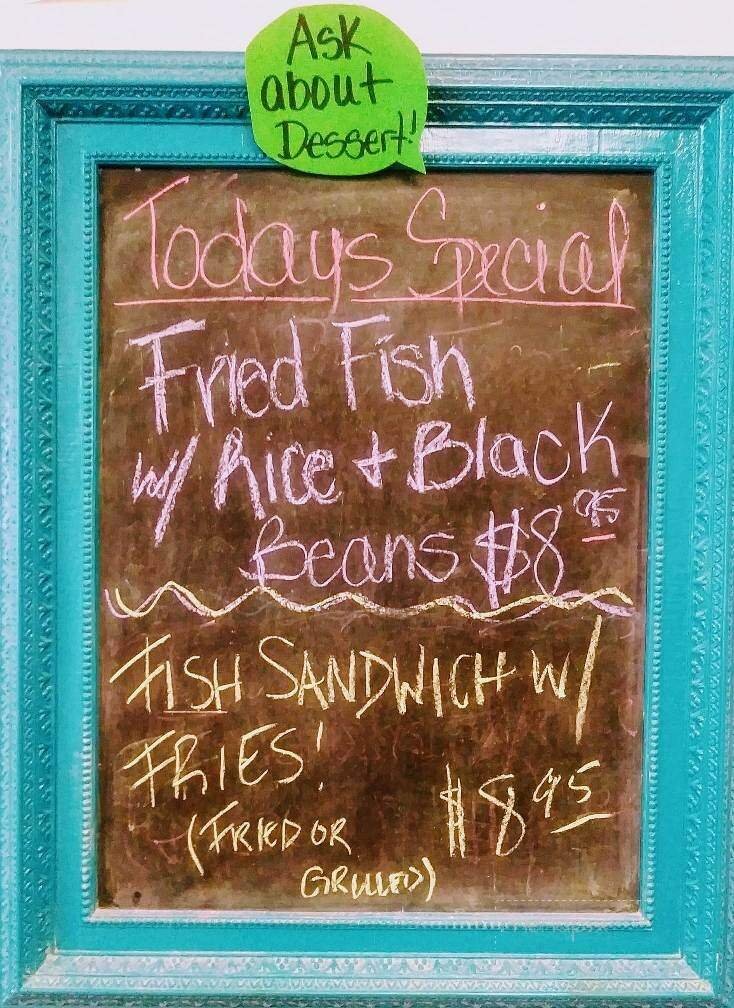 Ask
about
Dessert!
Todays Special
Fried Fish
w/ Rice + Black
Beans $8 95
FISH SANDWICH W/
FRIES!
$8 95
(FRIED OR
GRILLED)